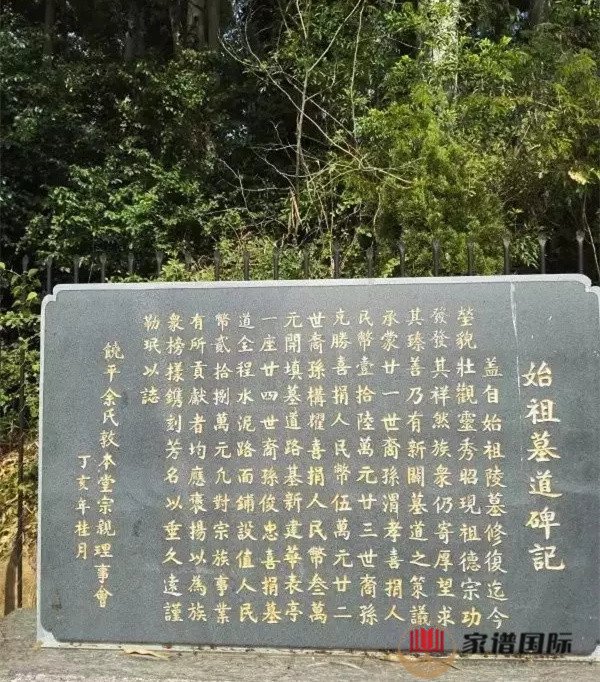 始祖墓道碑記
蓋自始祖陵墓修復迄今
塋貌壯觀靈秀昭現祖德宗功
發發其祥然族衆仍寄厚望求
其臻善乃有新闢墓道之策議
承蒙廿一世裔孫渭孝喜捐人
民幣壹拾陸萬元廿三世裔孫
克勝喜捐人民幣伍萬元廿二
世裔孫構耀喜捐人民幣叁萬
元開填墓道路基新建華表亭
一座廿四世裔孫俊忠喜捐墓
道全程水泥路面鋪設值人民
幣貳拾捌萬元凡對宗族事業
有所貢獻者均應褒揚以為族
衆榜樣鐫刻芳名以垂久遠謹
勒珉以誌
饒平余氏敦本堂宗親理事會
丁亥年桂月
家谱国际